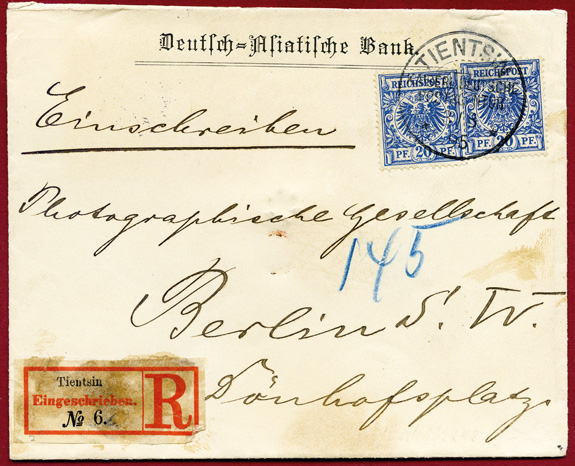 Deutsch=Asiatische Bank.
TIENTSIN
KAISERL. DEUTSCHE
REICHSPOST
1 PF. 20 PF. 1
REICHSPOST
1 PF. 20 PF.
Einschreiben
Photographische Gesellschaft
145
Berlin S. W.
Dönhofsplatz
Tientsin
Eingeschrieben.
№ 6.
R